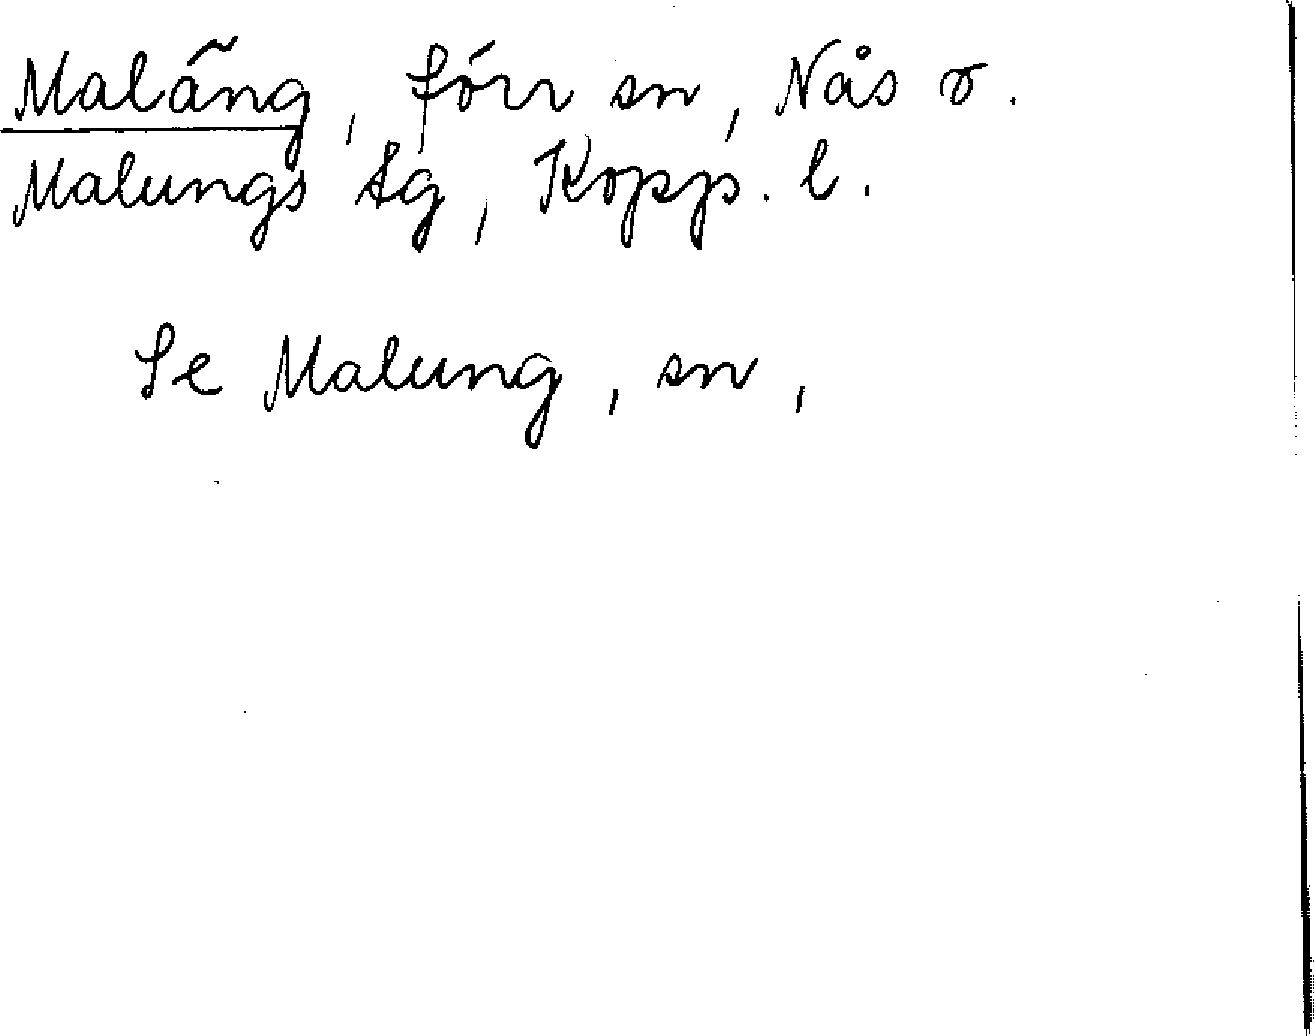 Malång, förr sn, Nås o.
Malungs tg, Kopp. l.
Se Malung, sn,